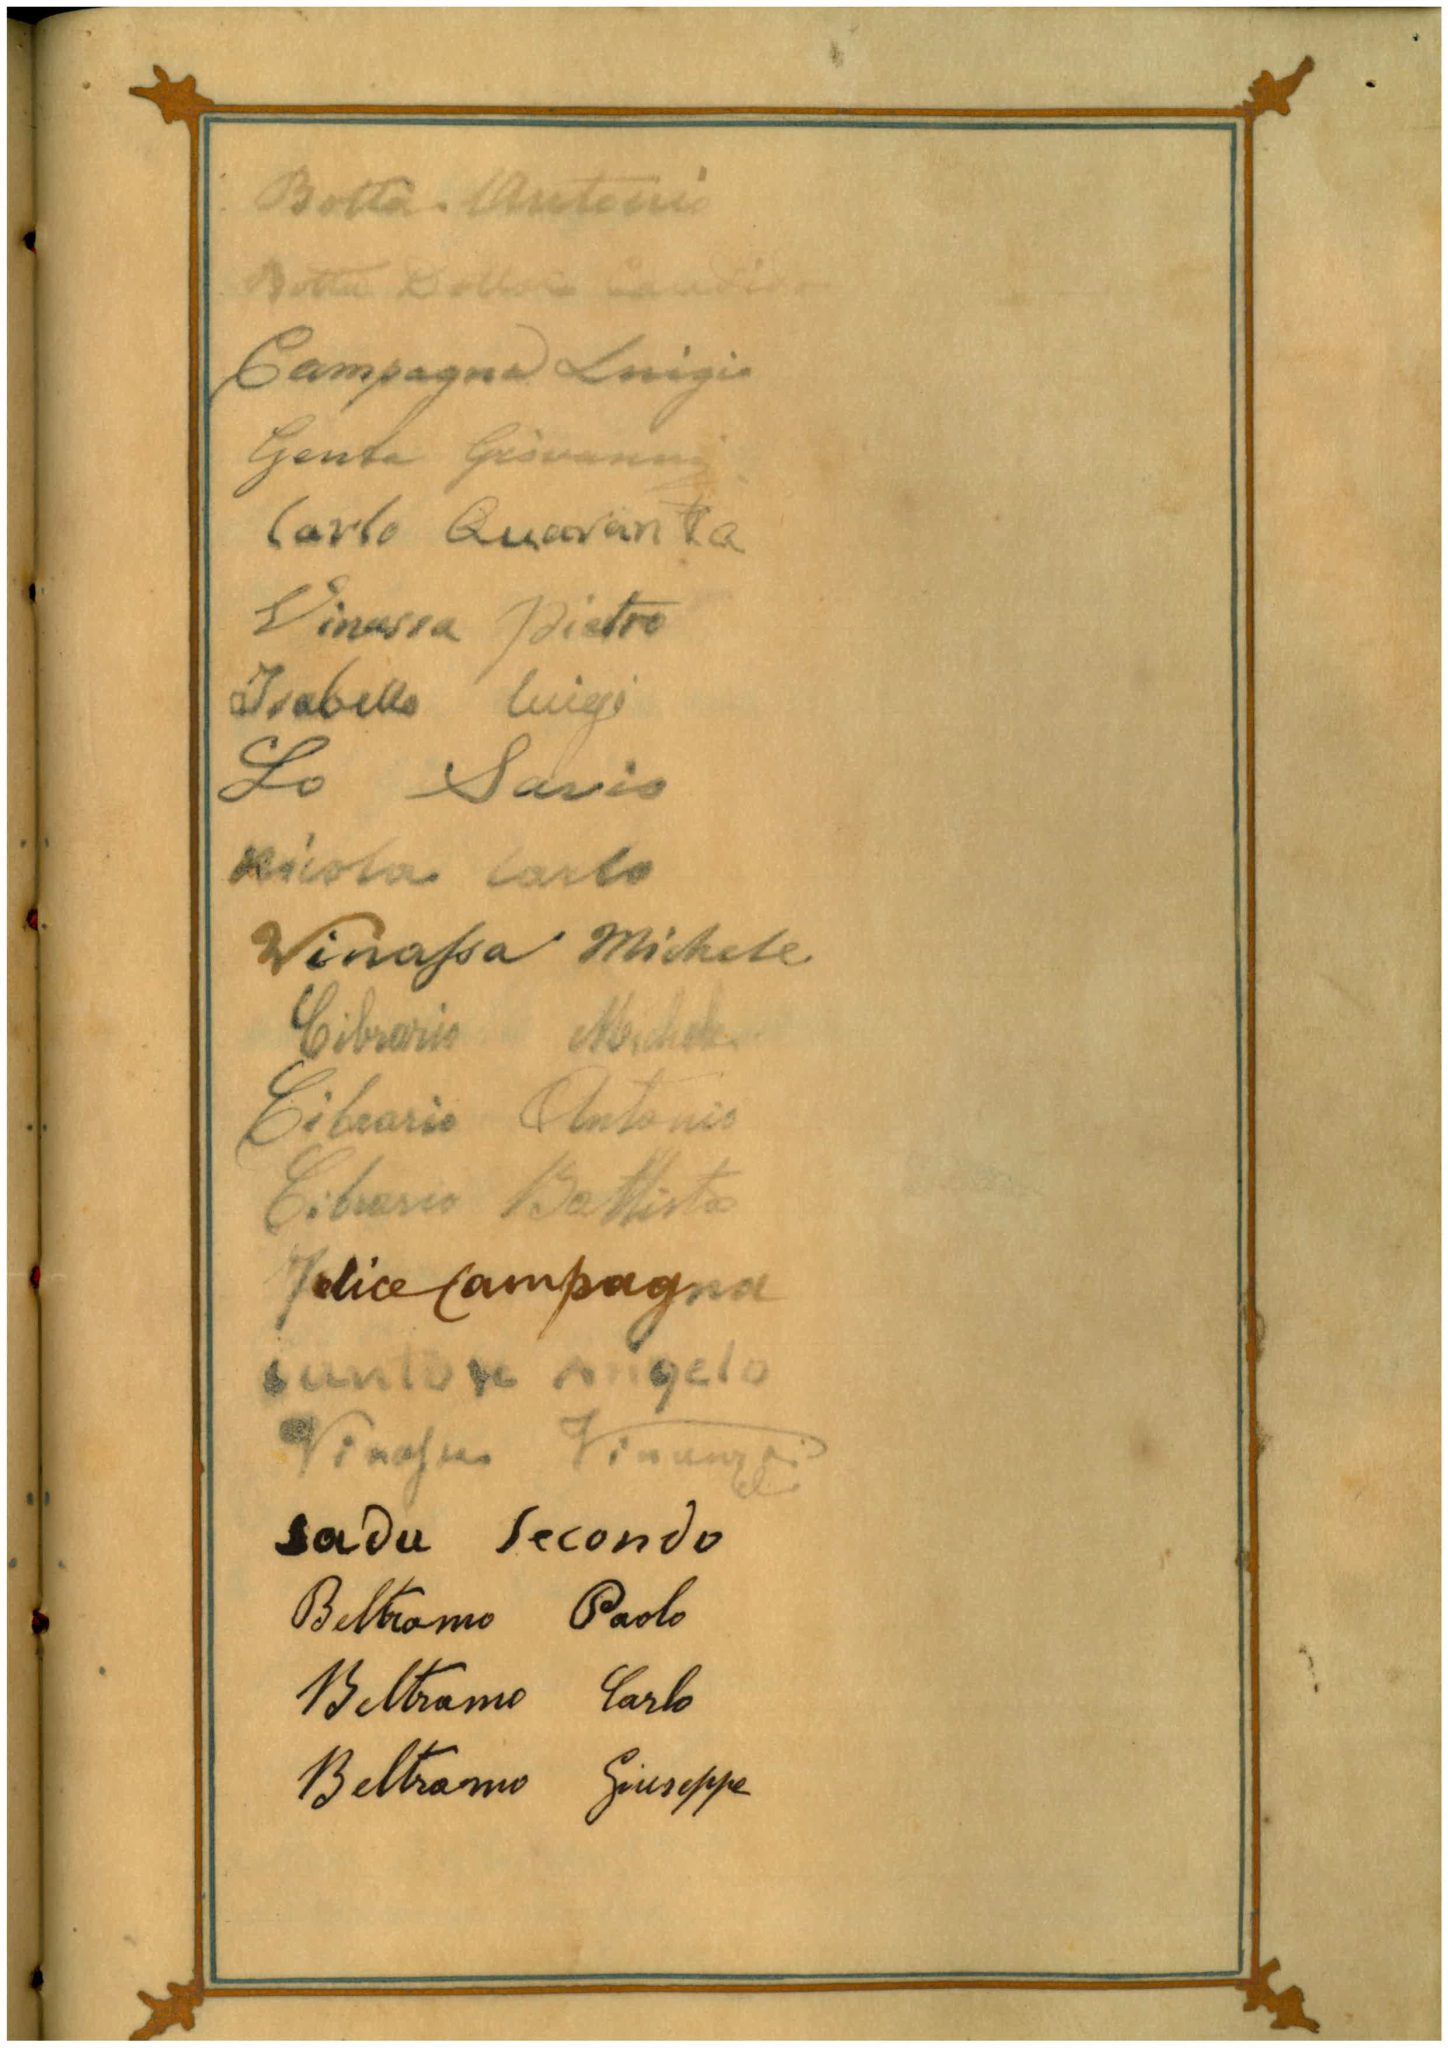 Botta Antonio
Botta Candido
Campagna Luigi
Genta Giovanni
Carlo Quaranta
Vinassa Pietro
Isabello Luigi
Lo Savio
Nicola Carlo
Vinassa Michele
Cibrario Michele
Cibrario Antonio
Cibrario Battista
Felice Campagna
Angelo
Vinassa
Sadu Secondo
Beltramo Paolo
Beltramo Carlo
Beltramo Giuseppe